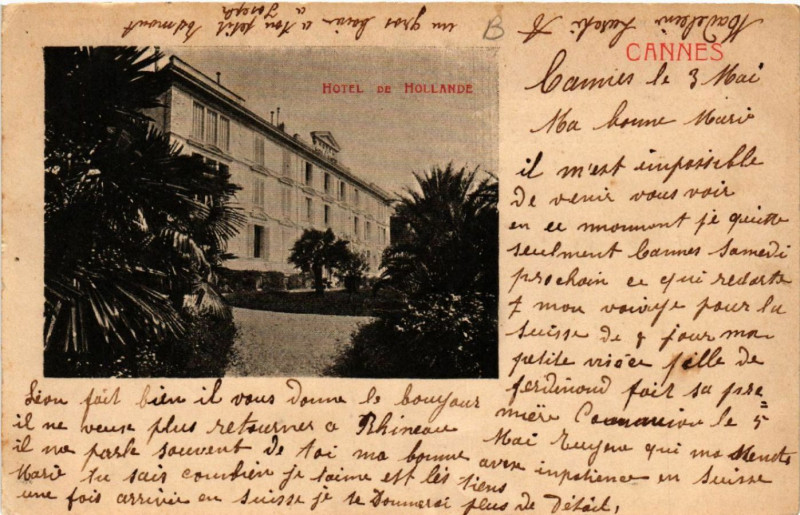 CANNES
HOTEL DE HOLLANDE
Cannes le 3 Mai
Ma bonne Marie
il m'est impossible
de venir vous voir
en ce mommont je quitte
seulment Cannes Samedi
prochain ce qui redarte
mon voiyage pour la
Suisse de 8 jour ma
petite nièce fille de
ferdinond fait sa pre=
mière Communion le 5
Mai Eugene qui ma attends
avex inpatience en Suisse
Léon fait bien il vous donne le bonjour
il ne veux plus retourner a Rhineau
il me parle souvent de toi ma bonne
Marie tu sais combien je t'aime est les tiens
une fois arrivée en Suisse je te donnerai plus de détail,
un gros baisé a ton petit
Joseph
B